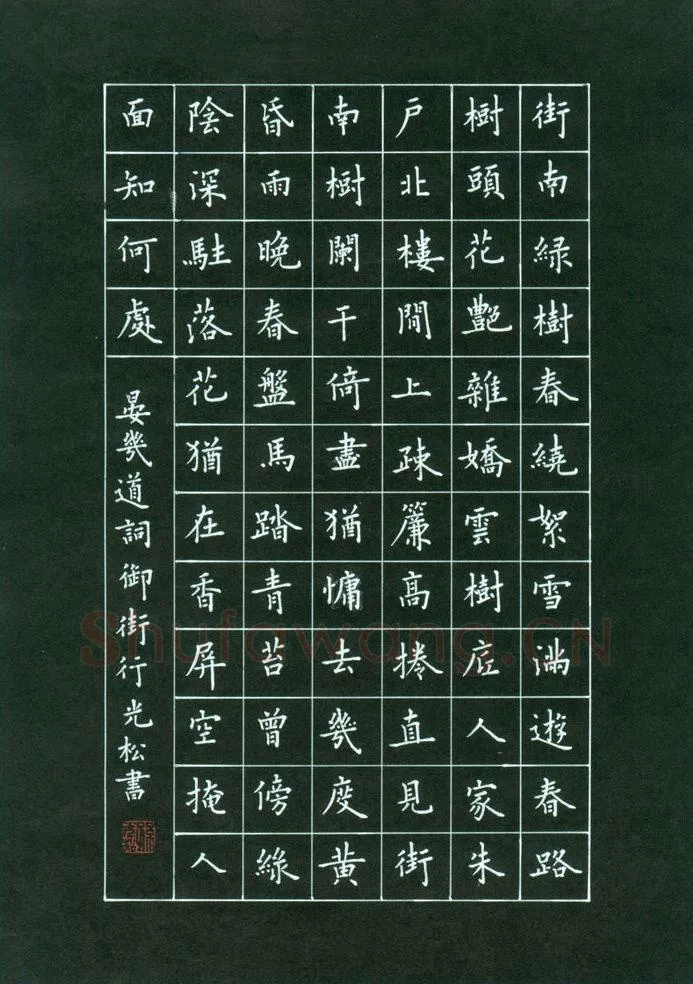 街南綠樹春繞絮雪滿遊春路
樹頭花艷雜嬌雲樹底人家朱
戶北樓閒上疎簾高捲直見街
南樹闌干倚盡猶慵去幾度黃
昏雨晚春盤馬踏青苔曾傍綠
陰深駐落花猶在香屏空掩人
面知何處
晏幾道詞御街行光松書
Shufawang.CN